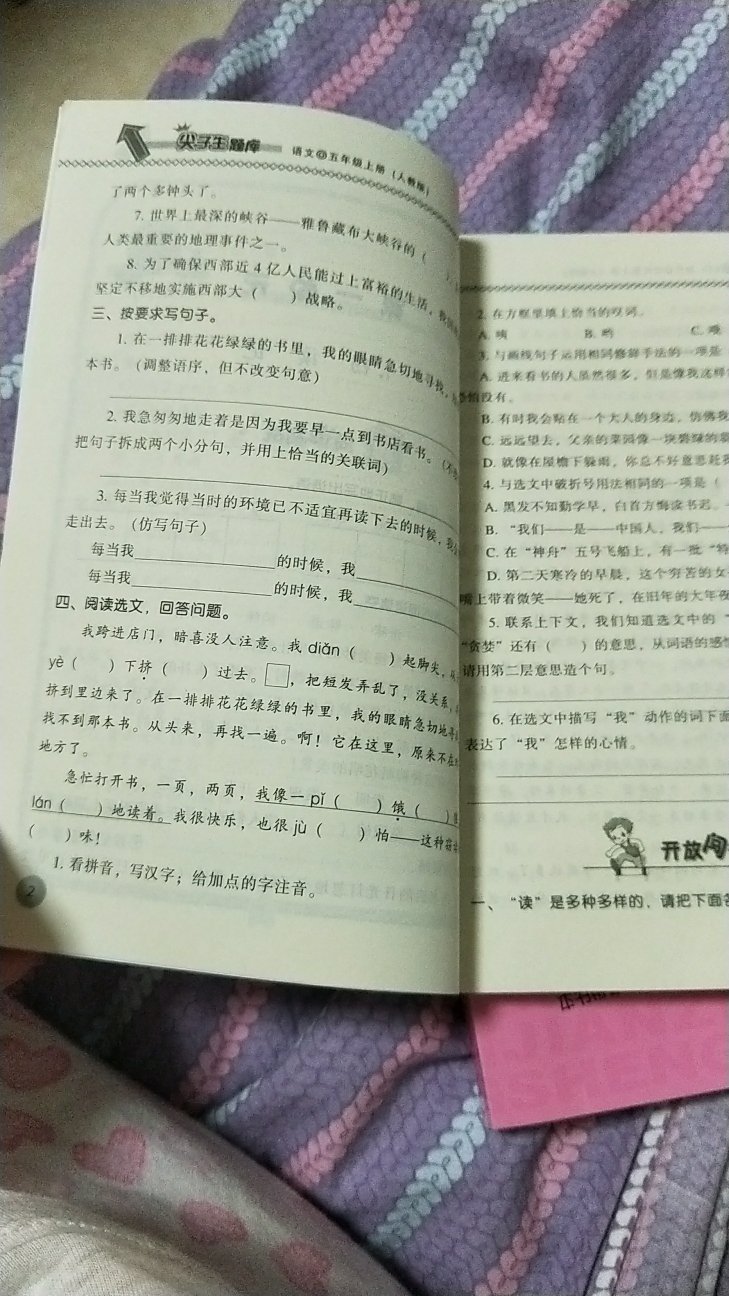 尖子生题库 语文 五年级上册（人教版）
了两个多钟头了。
7. 世界上最深的峡谷——雅鲁藏布大峡谷的（
人类最重要的地理事件之一。
8. 为了确保西部近 4 亿人民能过上富裕的生活，
坚定不移地实施西部大（　　）战略。
三、按要求写句子。
1. 在一排排花花绿绿的书里，我的眼睛急切地寻找，
本书。（调整语序，但不改变句意）
2. 我急匆匆地走着是因为我要早一点到书店看书。（
把句子拆成两个小分句，并用上恰当的关联词）
3. 每当我觉得当时的环境已不适宜再读下去的时候，我
走出去。（仿写句子）
每当我　　的时候，我
每当我　　的时候，我
四、阅读选文，回答问题。
我跨进店门，暗喜没人注意。我 diǎn（　　）起脚尖，从
yè（　　）下挤（　　）过去。□，把短发弄乱了，没关系，
挤到里边来了。在一排排花花绿绿的书里，我的眼睛急切地寻
找不到那本书。从头来，再找一遍。啊！它在这里，原来不在
地方了。
急忙打开书，一页，两页，我像一 pǐ（　　）饿（　　）
lán（　　）地读着。我很快乐，也很 jù（　　）怕——这种窃
（　　）味！
1. 看拼音，写汉字；给加点的字注音。
2
2. 在方框里填上恰当的叹词。
A. 咦 B. 哟 C. 哦
3. 与画线句子运用相同修辞手法的一项是
A. 进来看书的人虽然很多，但是像我这样
恐怕没有。
B. 有时我会贴在一个大人的身边，仿佛我
C. 远远望去，父亲的菜园像一块碧绿的翡
D. 就像在屋檐下躲雨，你总不好意思赶我
4. 与选文中破折号用法相同的一项是（
A. 黑发不知勤学早，白首方悔读书迟。
B. “我们——是——中国人，我们——
C. 在“神舟”五号飞船上，有一批“特
D. 第二天寒冷的早晨，这个穷苦的女
嘴上带着微笑——她死了，在旧年的大年夜
5. 联系上下文，我们知道选文中的“
“贪婪”还有（　　）的意思，从词语的感情
请用第二层意思造个句。
6. 在选文中描写“我”动作的词下面
表达了“我”怎样的心情。
开放阅
一、“读”是多种多样的，请把下面